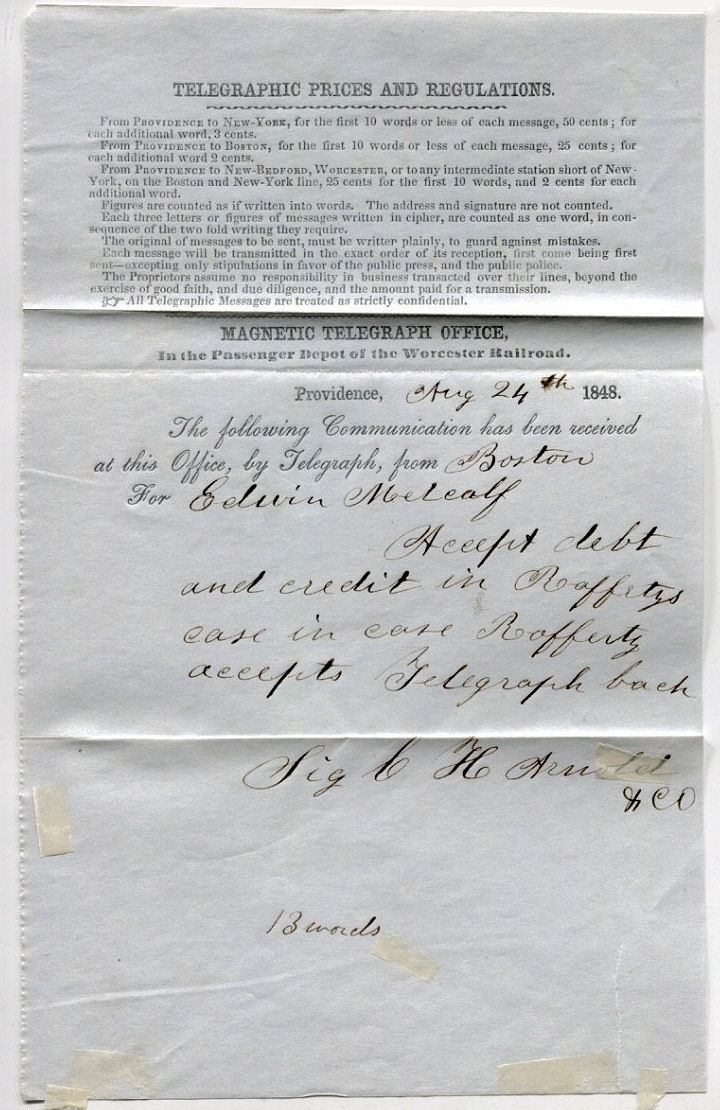 TELEGRAPHIC PRICES AND REGULATIONS.
From PROVIDENCE to NEW-YORK, for the first 10 words or less of each message, 50 cents; for
each additional word, 3 cents.
From PROVIDENCE to BOSTON, for the first 10 words or less of each message, 25 cents; for
each additional word 2 cents.
From PROVIDENCE to NEW-BEDFORD, WORCESTER, or to any intermediate station short of New-
York, on the Boston and New-York line, 25 cents for the first 10 words, and 2 cents for each
additional word.
Figures are counted as if written into words. The address and signature are not counted.
Each three letters or figures of messages written in cipher, are counted as one word, in con-
sequence of the two fold writing they require.
The original of messages to be sent, must be written plainly, to guard against mistakes.
Each message will be transmitted in the exact order of its reception, first come being first
sent—excepting only stipulations in favor of the public press, and the public police.
The Proprietors assume no responsibility in business transacted over their lines, beyond the
exercise of good faith, and due diligence, and the amount paid for a transmission.
☞ All Telegraphic Messages are treated as strictly confidential.
MAGNETIC TELEGRAPH OFFICE,
In the Passenger Depot of the Worcester Railroad.
Providence, Aug 24th 1848.
The following Communication has been received
at this Office, by Telegraph, from Boston
For Edwin Metcalf
Accept debt
and credit in Raffertys
case in case Rafferty
accepts Telegraph back
Sig C H Arnold
& CO
13 words